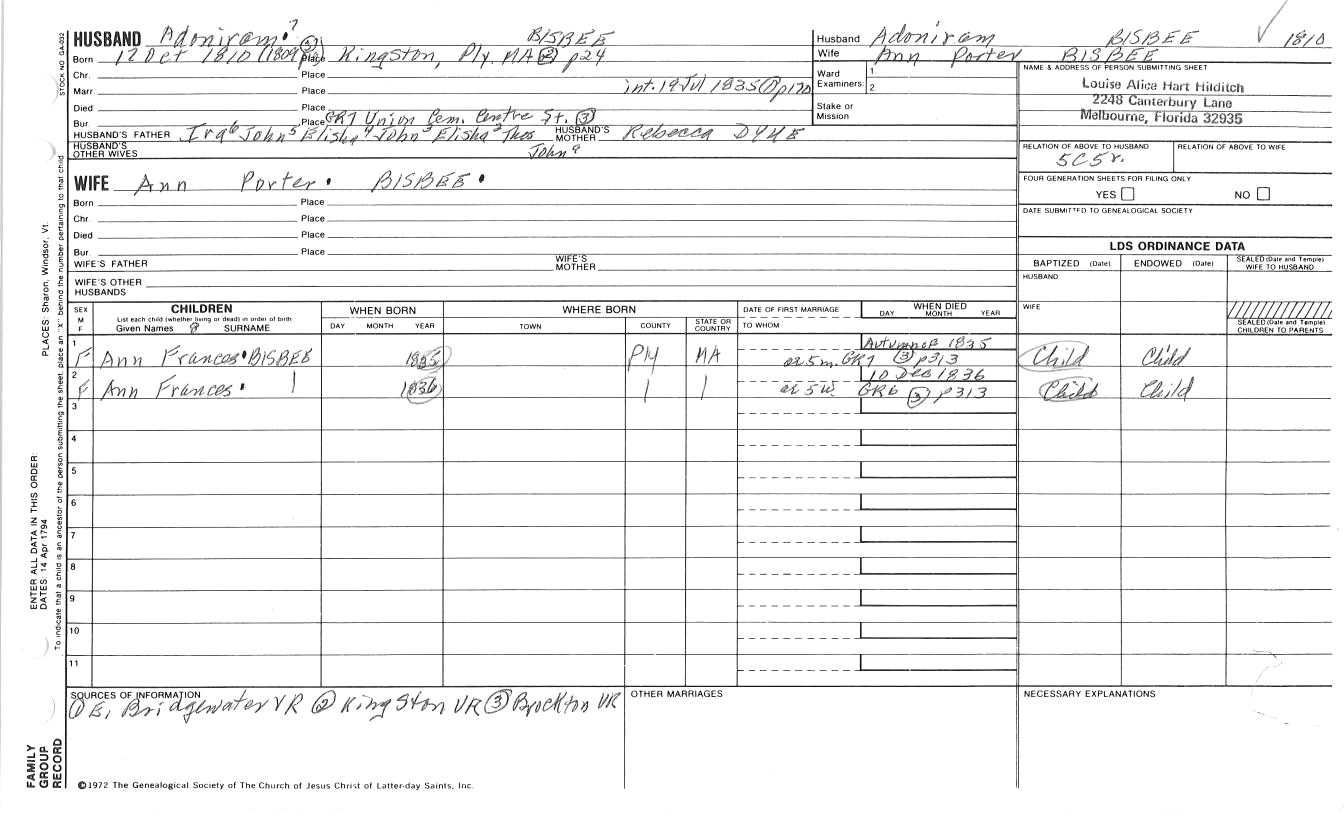 HUSBAND Adoniram? BISBEE
Born 12 Oct 1810 (1809 Place Kingston, Ply. MA ② p24
Chr. Place
Marr. Place int. 19 Jul 1835 ① p170
Died Place
Bur. Place GR7 Union Cem. Centre St. ③
HUSBAND'S FATHER Ira⁶ John⁵ Elisha⁴ John³ Elisha² Thos HUSBAND'S MOTHER Rebecca DYKE
HUSBAND'S OTHER WIVES John
WIFE Ann Porter BISBEE
Born Place
Chr. Place
Died Place
Bur. Place
WIFE'S FATHER WIFE'S MOTHER
WIFE'S OTHER HUSBANDS
Husband Adoniram BISBEE 1810
Wife Ann Porter BISBEE
Ward Examiners: 1 2
Stake or Mission
NAME & ADDRESS OF PERSON SUBMITTING SHEET
Louise Alice Hart Hilditch
2248 Canterbury Lane
Melbourne, Florida 32935
RELATION OF ABOVE TO HUSBAND RELATION OF ABOVE TO WIFE
5C5r.
FOUR GENERATION SHEETS FOR FILING ONLY
YES NO
DATE SUBMITTED TO GENEALOGICAL SOCIETY
LDS ORDINANCE DATA
BAPTIZED (Date) ENDOWED (Date) SEALED (Date and Temple) WIFE TO HUSBAND
HUSBAND
WIFE
SEALED (Date and Temple) CHILDREN TO PARENTS
SEX M F CHILDREN List each child (whether living or dead) in order of birth Given Names SURNAME
WHEN BORN DAY MONTH YEAR
WHERE BORN TOWN COUNTY STATE OR COUNTRY
DATE OF FIRST MARRIAGE TO WHOM
WHEN DIED DAY MONTH YEAR
1 F Ann Frances BISBEE 1835 Ply MA Autumn 1835 ae 5 m. GR7 ③ p313 Child Child
2 F Ann Frances 1836 10 Dec 1836 ae 5 w. GR6 ③ p313 Child Child
3
4
5
6
7
8
9
10
11
SOURCES OF INFORMATION
① E, Bridgewater VR ② Kingston VR ③ Brockton VR
OTHER MARRIAGES
NECESSARY EXPLANATIONS
©1972 The Genealogical Society of The Church of Jesus Christ of Latter-day Saints, Inc.
STOCK NO. GA-032
PLACES: Sharon, Windsor, Vt.
To indicate that a child is an ancestor of the person submitting the sheet, place an "X" behind the number pertaining to that child.
ENTER ALL DATA IN THIS ORDER
DATES: 14 Apr 1794
FAMILY GROUP RECORD